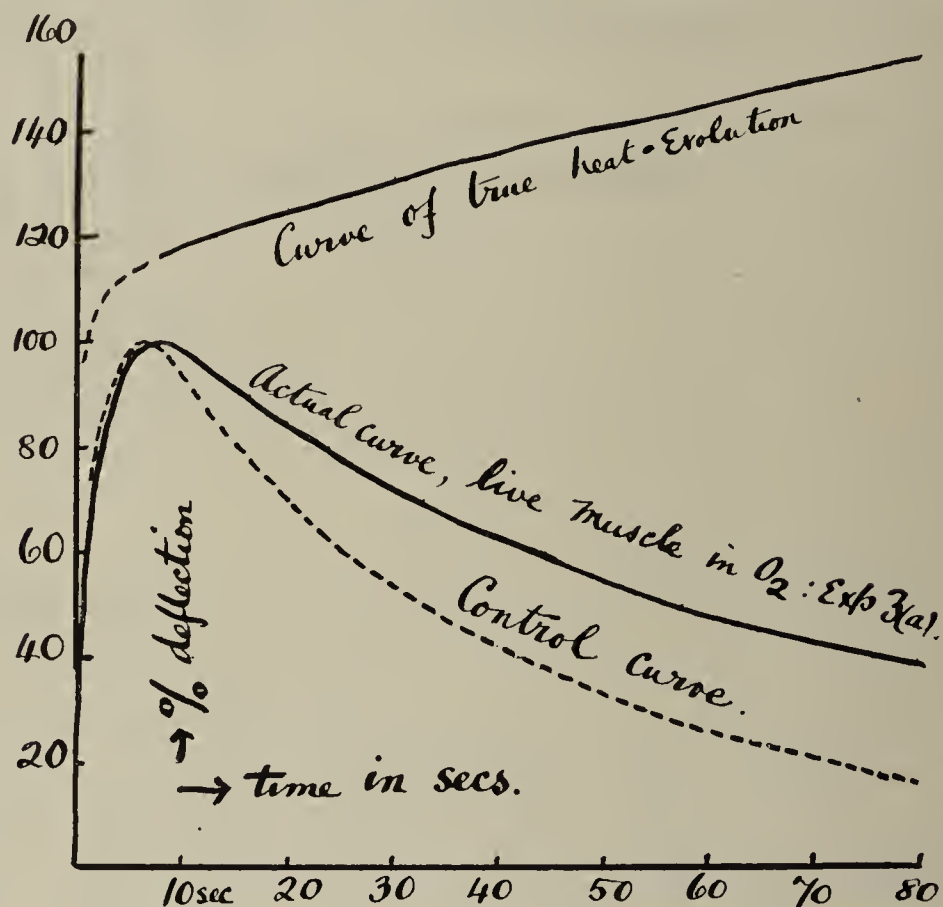 160
140
120
100
80
60
40
20
Curve of true heat-Evolution
Actual curve, live muscle in O2: Exp 3(a).
Control curve.
→ % deflection
→ time in secs.
10sec 20 30 40 50 60 70 80